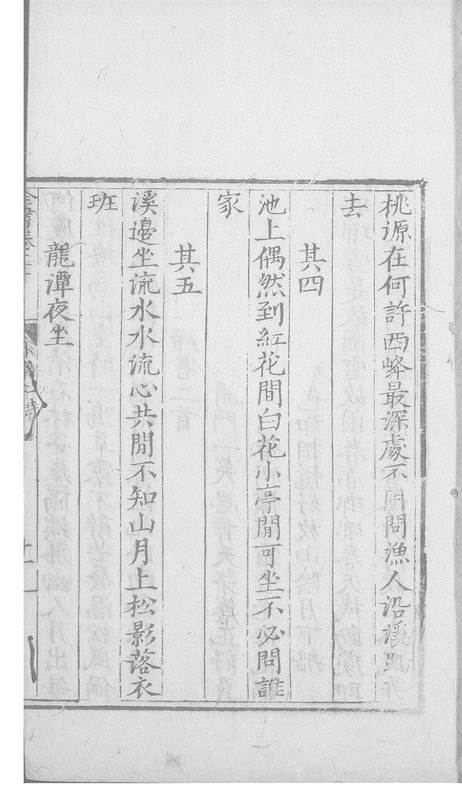 桃源在何許西峰最深處不用問漁人沿溪
去
其四
池上偶然到紅花間白花小亭閒可坐不必問誰
家
其五
溪邊坐流水水流心共閒不知山月上松影落衣
班
龍潭夜坐